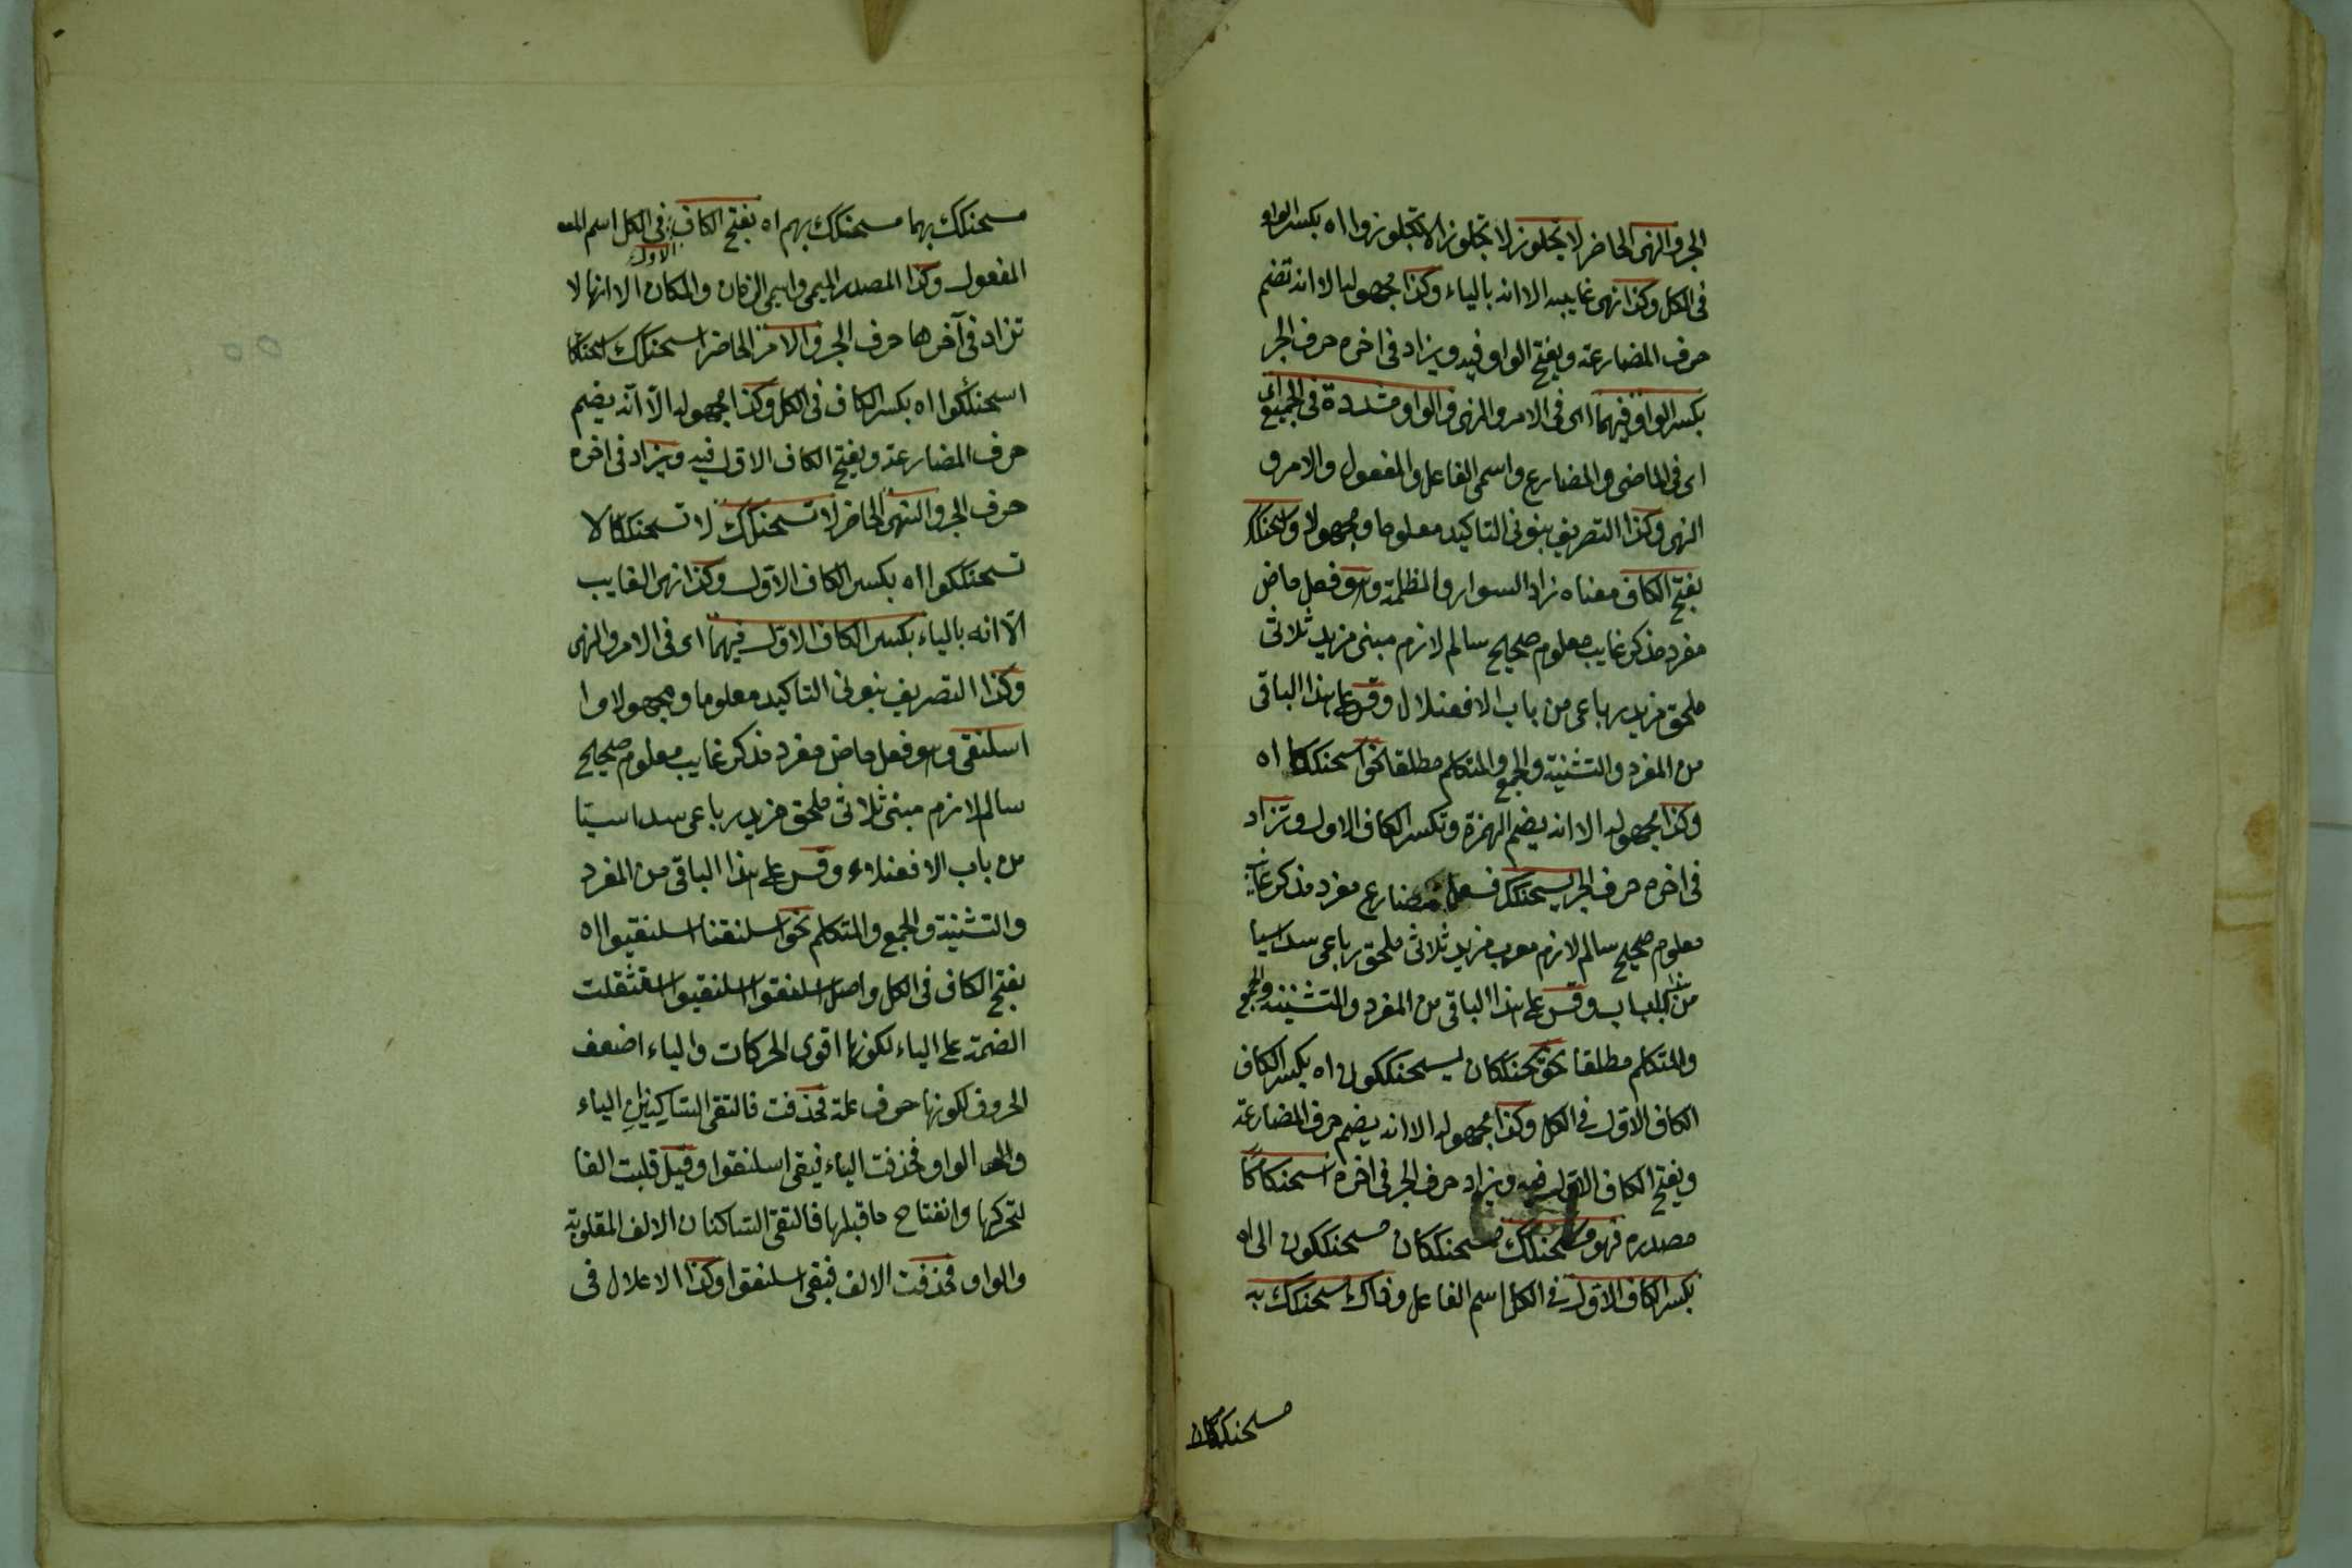 الجر والنهى الحاضر لا تجلوز لا تجلوزا لا تجلوزوا اه بكسر الواو
فى الكل وكذا نهى غايبه الا انه بالياء وكذا مجهولها الا انه تضم
حرف المضارعة ويفتح الواو فيه ويزاد فى اخره حرف الجر
بكسر الواو فيهما اى فى الامر والنهى والواو مشددة فى الجميع
اى فى الماضى والمضارع واسمى الفاعل والمفعول والامر و
النهى وكذا التصريف بنونى التاكيد معلوما ومجهولا واسحنكك
بفتح الكاف معناه زاد السواد والمظلمة وهو فعل ماض
مفرد مذكر غايب معلوم صحيح سالم لازم مبنى مزيد ثلاثى
ملحق مزيد رباعى من باب الافعنلال وقس على هذا الباقى
من المفرد والتثنية والجمع والمتكلم مطلقا نحو اسحنككا اه
وكذا مجهوله الا انه يضم الهمزة وتكسر الكاف الاول وتزاد
فى اخره حرف الجر يسحنكك فعل مضارع مفرد مذكر غايب
معلوم صحيح سالم لازم معرب مزيد ثلاثى ملحق رباعى سداسيا
من هذا الباب وقس على هذا الباقى من المفرد والتثنية والجمع
والمتكلم مطلقا نحو يسحنككان يسحنككون اه بكسر الكاف
الكاف الاول فى الكل وكذا مجهوله الا انه يضم حرف المضارعة
ويفتح الكاف الاول فيه ويزاد حرف الجر فى اخره اسحنكاكا
مصدره فهو مسحنكك مسحنككان مسحنككون الى اه
بكسر الكاف الاول فى الكل اسم الفاعل وذاك مسحنكك به
مسحنكك بهما
مسحنكك بهما مسحنكك بهم اه بفتح الكاف الاول فى الكل اسم المفعول
المفعول وكذا المصدر الميمى واسمى الزمان والمكان الا انها لا
تزاد فى آخرها حرف الجر والامر الحاضر اسحنكك اسحنككا
اسحنككوا اه بكسر الكاف فى الكل وكذا مجهوله الّا انّه يضم
حرف المضارعة ويفتح الكاف الاول فيه ويزاد فى اخره
حرف الجر والنهى الحاضر لا تسحنكك لا تسحنككا لا
تسحنككوا اه بكسر الكاف الاول وكذا نهى الغايب
الّا انه بالياء بكسر الكاف الاول فيهما اى فى الامر والنهى
وكذا التصريف بنونى التاكيد معلوما ومجهولا وا
اسلنقى وهو فعل ماض مفرد مذكر غايب معلوم صحيح
سالم لازم مبنى ثلاثى ملحق مزيد رباعى سداسيّا
من باب الافعنلاء وقس على هذا الباقى من المفرد
والتثنية والجمع والمتكلم نحو اسلنقنا اسلنقيوا اه
بفتح الكاف فى الكل واصل اسلنقوا اسلنقيوا استثقلت
الضمة على الياء لكونها اقوى الحركات والياء اضعف
الحروف لكونها حرف علة فحذفت فالتقى الساكنين الياء
والواو فحذفت الياء فبقى اسلنقوا وقيل قلبت الفا
لتحركها وانفتاح ما قبلها فالتقى الساكنان الالف المقلوبة
والواو فحذفت الالف فبقى اسلنقوا وكذا الاعلال فى